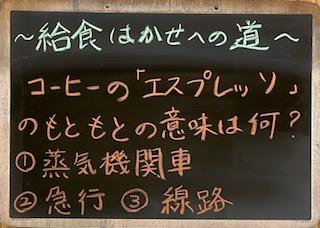 ～給食はかせへの道～
コーヒーの「エスプレッソ」
のもともとの意味は何？
①蒸気機関車
②急行 ③線路